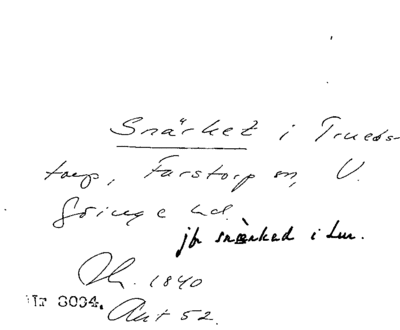 Snärket i Trueds-
torp, Farstorp sn, V.
Göinge hd.
jfr snärkad i Lun.
1840
Nr 8094. Ant 52.